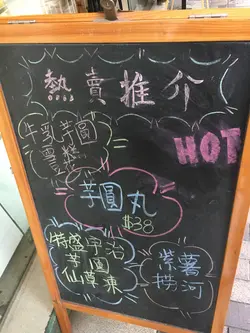 熱賣推介
芋圓
HOT
芋圓丸
$38
特盛宇治
芋圓
仙草凍
紫薯
撈河